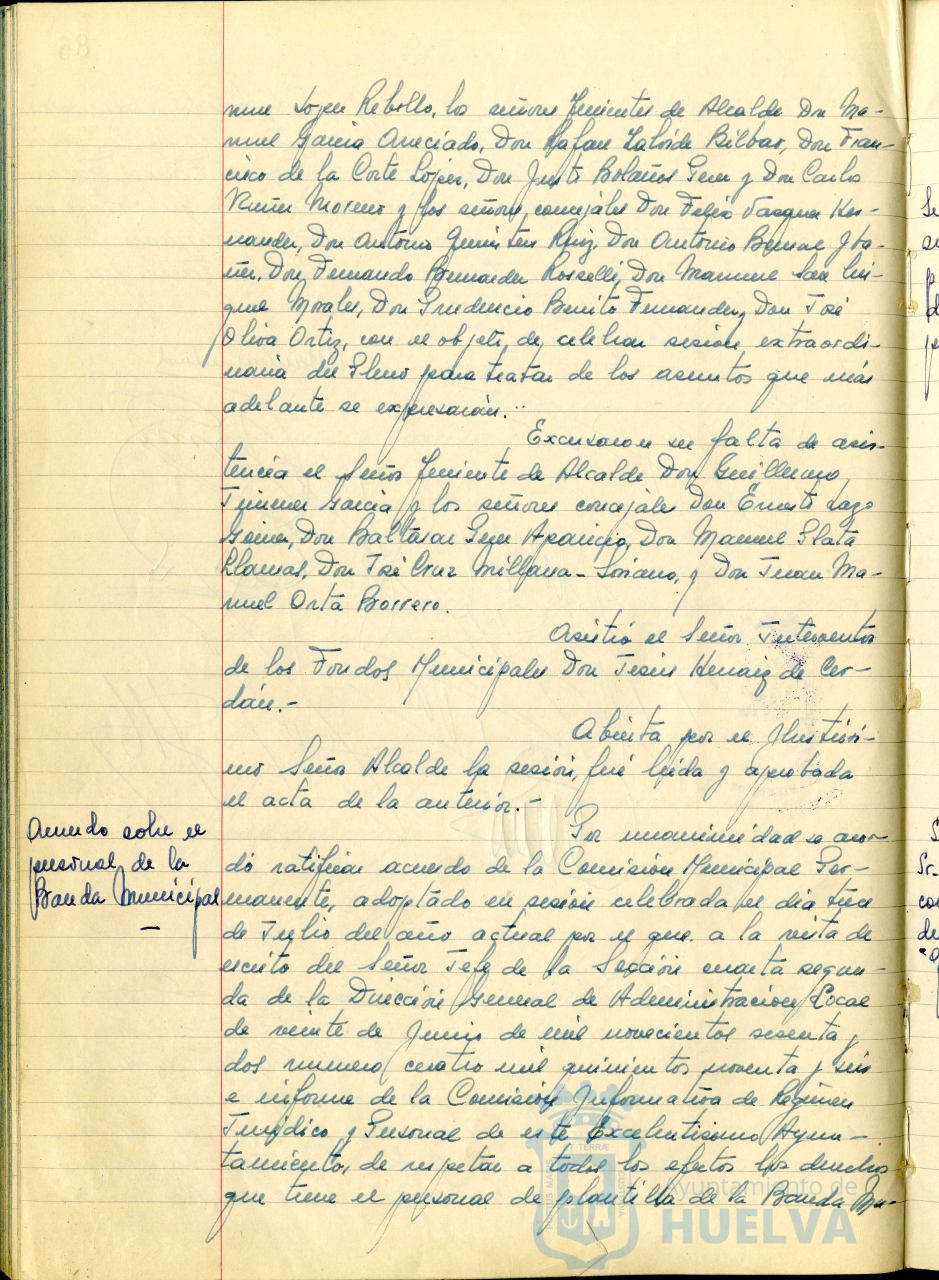 nuel López Rebollo, los señores Tenientes de Alcalde Don Ma-
nuel García Aneciado, Don Rafael Laborde Bilbao, Don Fran-
cisco de la Corte López, Don Justo Bolaños Gem y Don Carlos
Moreno y los señores, concejales Don Felix Vazquez Her-
nandez, Don Antonio Ruiz, Don Antonio Bernal Iba-
ñez, Don Fernando Bernardez Rosselli, Don Manuel
que Morales, Don Prudencio Benito Fernandez, Don José
Oliva Ortiz, con el objeto de celebrar sesión extraordi-
naria del Pleno para tratar de los asuntos que más
adelante se expresarán.-
Excusaron su falta de asis-
tencia el Señor Teniente de Alcalde Don Guillermo
Jimenez García y los señores concejales Don Ernesto Lazo
Don Baltasar Aparicio, Don Manuel Plata
Llamas, Don José Cruz Millana-Soriano, y Don Juan Ma-
nuel Orta Borrero.
Asistió el Señor Interventor
de los Fondos Municipales Don Jesús Henaiz de Cer-
dán.-
Abierta por el Ilustrisi-
mo Señor Alcalde la sesión, fué leida y aprobada
el acta de la anterior.-
Acuerdo sobre el
personal de la
Banda Municipal
Por unanimidad se acor-
dó ratificar acuerdo de la Comisión Municipal Per-
manente, adoptado en sesión celebrada el día trece
de Julio del año actual por el que a la vista de
escrito del Señor Jefe de la Sección cuarta segun-
da de la Dirección General de Administración Local
de veinte de Junio de mil novecientos sesenta y
dos numero cuatro mil quinientos noventa y seis
e informe de la Comisión Informativa de Régimen
Jurídico y Personal de este Excelentisimo Ayun-
tamiento, de respetar a todos los efectos los derechos
que tiene el personal de plantilla de la Banda Mu-
Ayuntamiento de
HUELVA